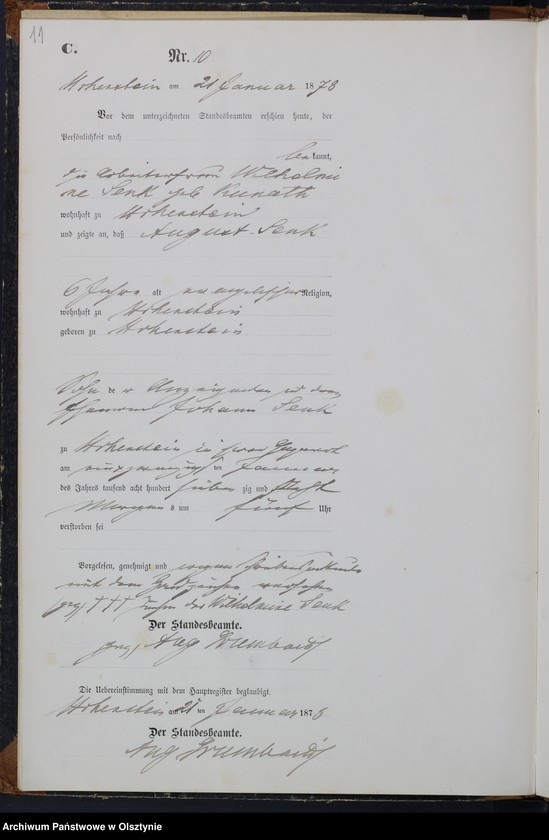 11
C.
Nr. 10
Hohenstein am 21 Januar 1878
Vor dem unterzeichneten Standesbeamten erschien heute, der
Persönlichkeit nach
bekannt,
die Arbeiterfrau Wilhelmi
ne Senk geb Kunath
wohnhaft zu Hohenstein
und zeigte an, daß August Senk
6 Jahre alt evangelischer Religion,
wohnhaft zu Hohenstein
geboren zu Hohenstein
Sohn der Anzeigenden und deren
Ehemann Johann Senk
zu Hohenstein in ihrer Gegenwart
am einundzwanzigsten Januar
des Jahres tausend acht hundert siebenzig und acht
Morgens um fünf Uhr
verstorben sei
Vorgelesen, genehmigt und wegen Schreibensunkunde
mit dem Handzeichen versehen
gez †††  der Wilhelmine Senk
Der Standesbeamte.
gez, Aug Grumbach
Die Uebereinstimmung mit dem Hauptregister beglaubigt.
Hohenstein am 21 ten Januar 1878
Der Standesbeamte.
Aug Grumbach
Archiwum Państwowe w Olsztynie